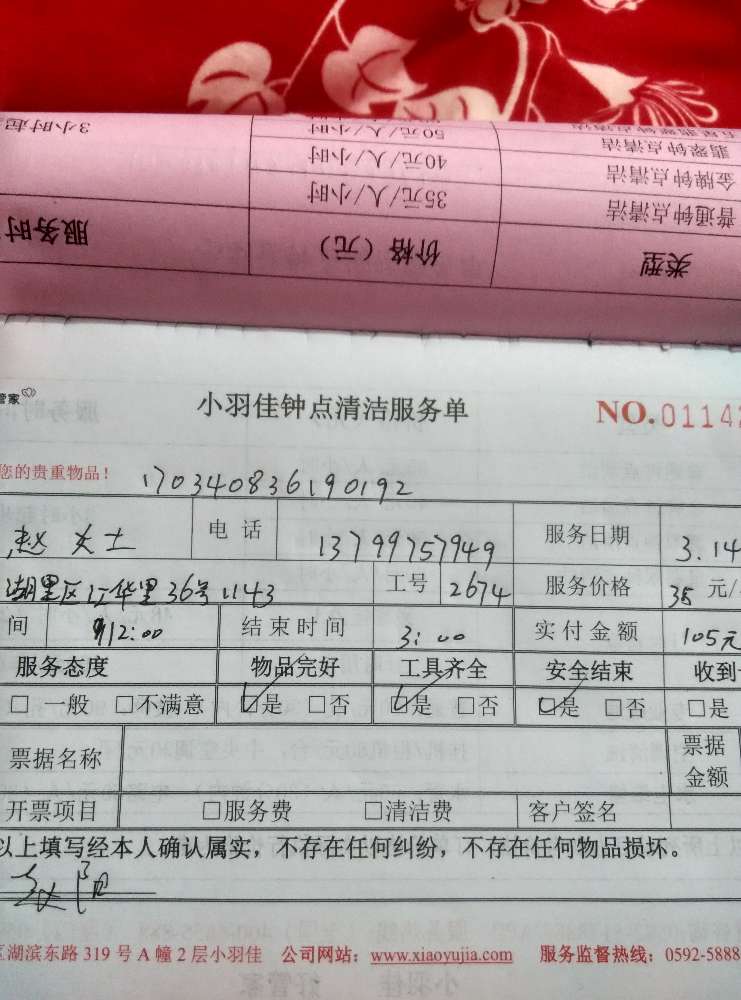 3小时起 50元/人/小时
翡翠钟点清洁
40元/人/小时 金牌钟点清洁
35元/人/小时 普通钟点清洁
服务时 价格（元） 类型
管家
小羽佳钟点清洁服务单 NO.01142
您的贵重物品！ 170340836190192
赵女士 电话 13799757949 服务日期 3.14
湖里区江华里36号1143 工号 2674 服务价格 35元/
间 12:00 结束时间 3:00 实付金额 105元
服务态度 物品完好 工具齐全 安全结束 收到
□一般 □不满意 ☑是 □否 ☑是 □否 ☑是 □否 □是
票据名称 票据金额
开票项目 □服务费 □清洁费 客户签名
以上填写经本人确认属实，不存在任何纠纷，不存在任何物品损坏。
区湖滨东路319号A幢2层小羽佳 公司网站：www.xiaoyujia.com 服务监督热线：0592-5888